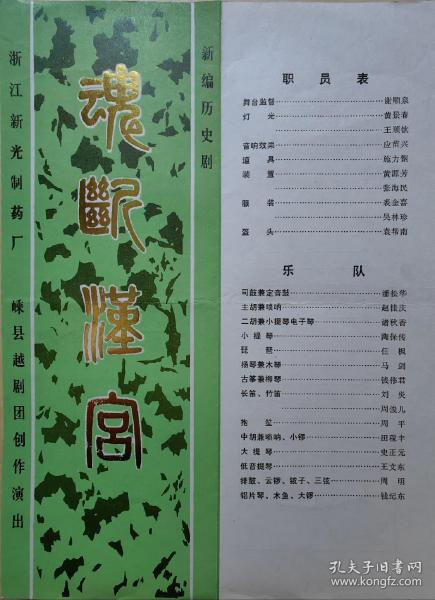 新编历史剧
魂斷漢宫
浙江新光制药厂 嵊县越剧团创作演出
职员表
舞台监督 谢顺泉
灯光 黄景春
王顺钦
音响效果 应苗兴
道具 施力钢
装置 黄源芳
张海民
服装 袁金喜
吴林珍
盔头 袁帮南
乐队
司鼓兼定音鼓 潘松华
主胡兼唢呐 赵桂庆
二胡兼小提琴电子琴 诸秋香
小提琴 陶保传
琵琶 任枫
扬琴兼木琴 马剑
古筝兼柳琴 钱稼君
长笛、竹笛 刘炎
周凌儿
抱笙 周平
中胡兼唢呐、小锣 田稼丰
大提琴 史正元
低音提琴 王文东
排鼓、云锣、钹子、三弦 周明
铝片琴、木鱼、大锣 钱纪东
孔夫子旧书网
www.kongfz.com